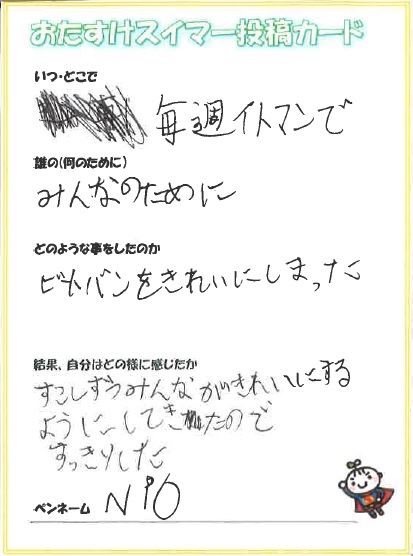 おたすけスイマー投稿カード
いつ・どこで
毎週イトマンで
誰の(何のために)
みんなのために
どのような事をしたのか
ビトバンをきれいにしまった
結果、自分はどの様に感じたか
すこしずつみんながきれいにする
ようにしてきたので
すっきりした
ペンネーム NPO